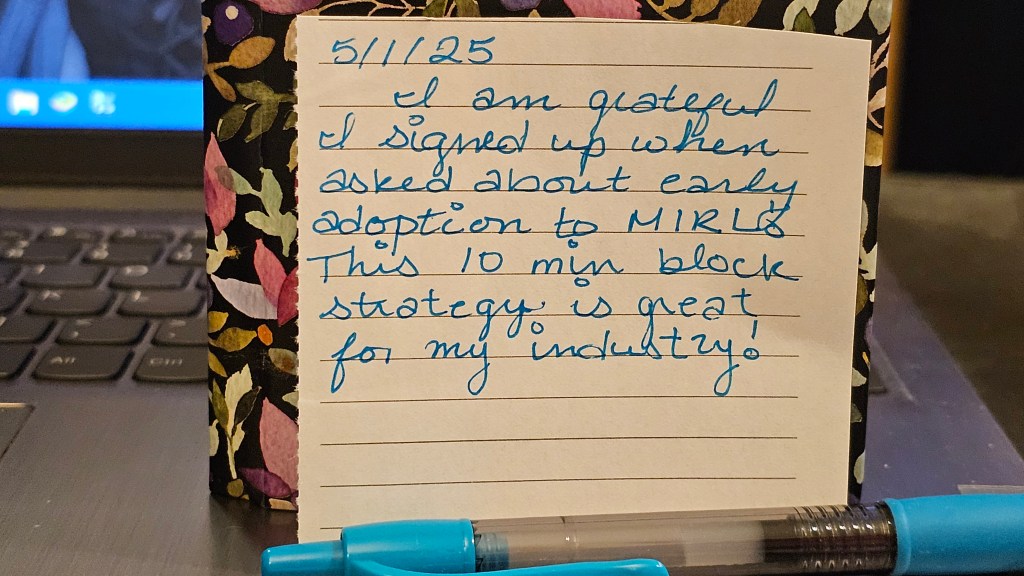 5/1/25
I am grateful
I signed up when
asked about early
adoption to MIRLs
This 10 min block
strategy is great
for my industry!
Alt
Ctrl